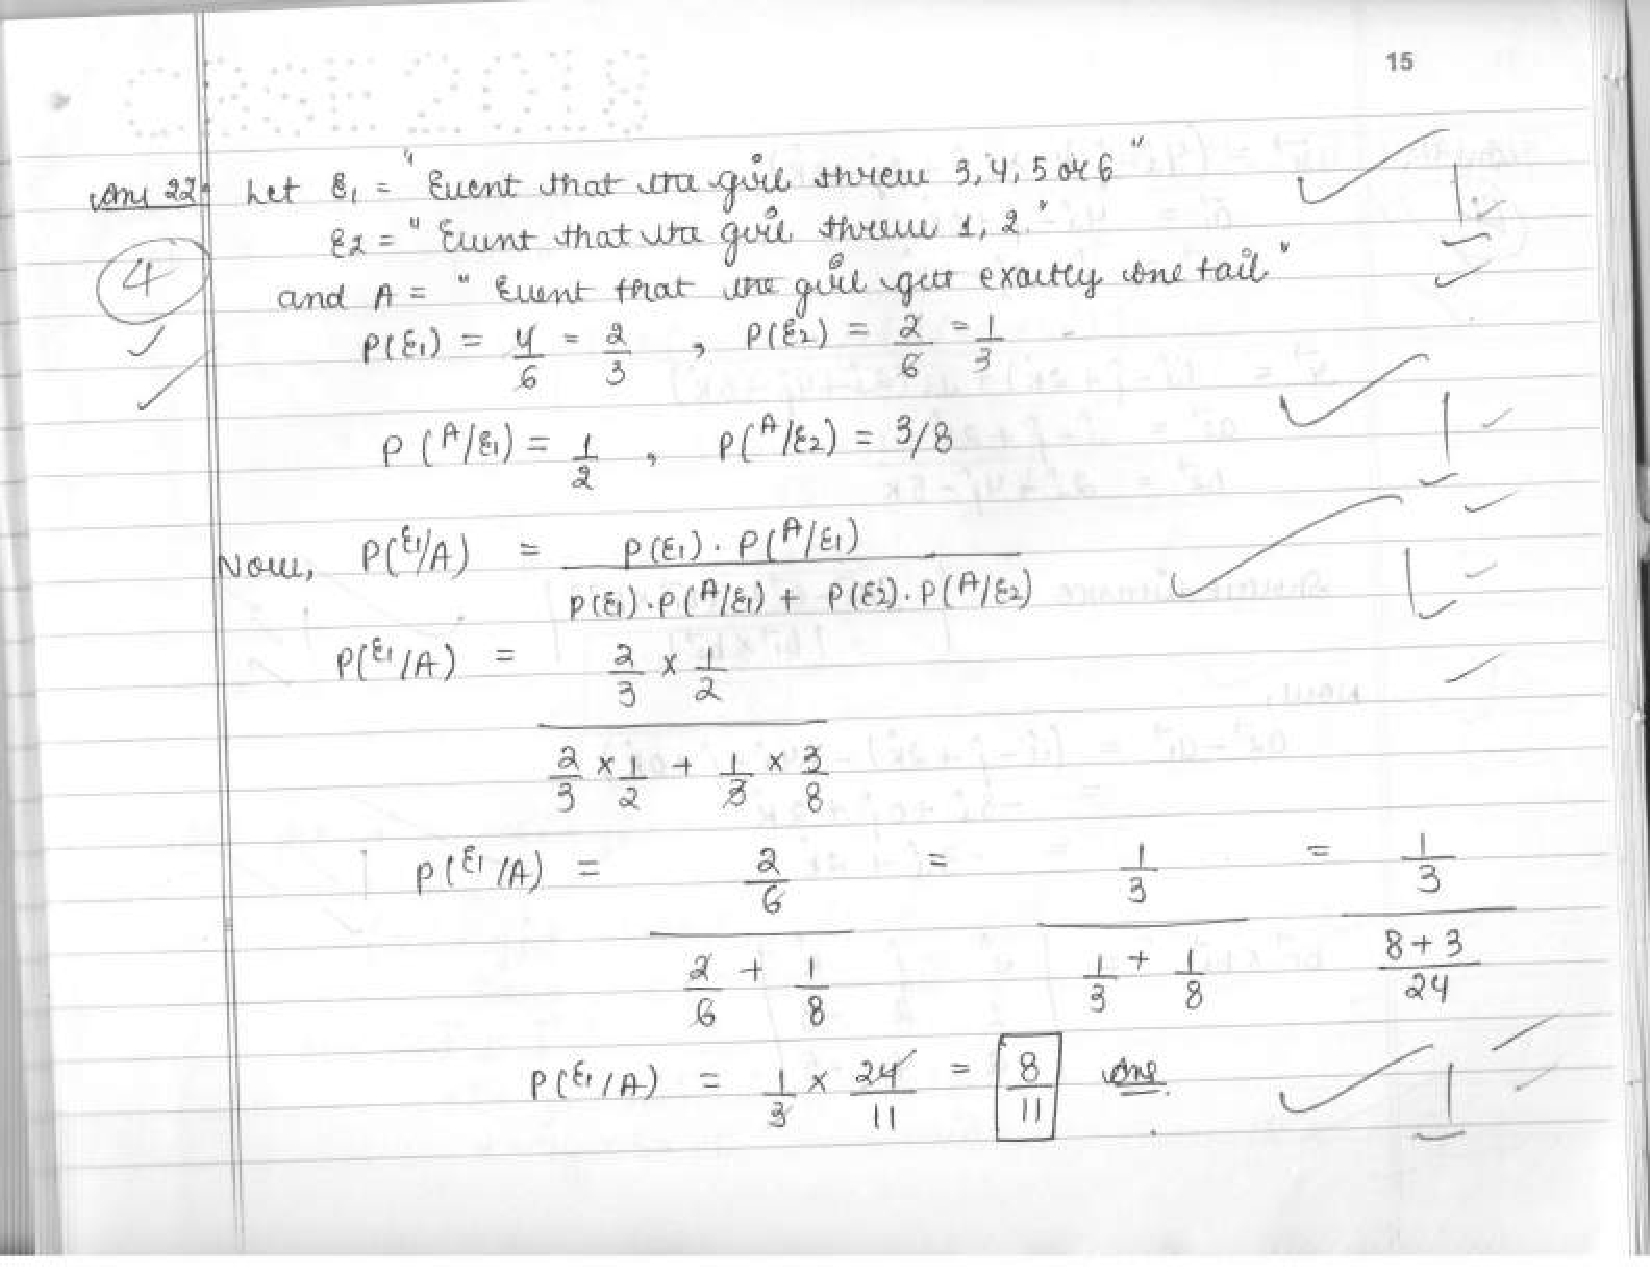 CBSE 2018
15
Ans 22: Let E₁ = "Event that the girl threw 3, 4, 5 or 6"
E2 = "Event that the girl threw 1, 2."
4
and A = "Event that the girl gets exactly one tail"
P(E₁) = 4/6 = 2/3 , P(E₂) = 2/6 = 1/3
P(A/E₁) = 1/2 , P(A/E₂) = 3/8
Now, P(E₁/A) = P(E₁) . P(A/E₁) / P(E₁) . P(A/E₁) + P(E₂) . P(A/E₂)
P(E₁/A) = 2/3 x 1/2
2/3 x 1/2 + 1/3 x 3/8
P(E₁/A) = 2/6 = 1/3 = 1/3
2/6 + 1/8 1/3 + 1/8 8+3/24
P(E₁/A) = 1/3 x 24/11 = 8/11 Ans
1
1
1
1